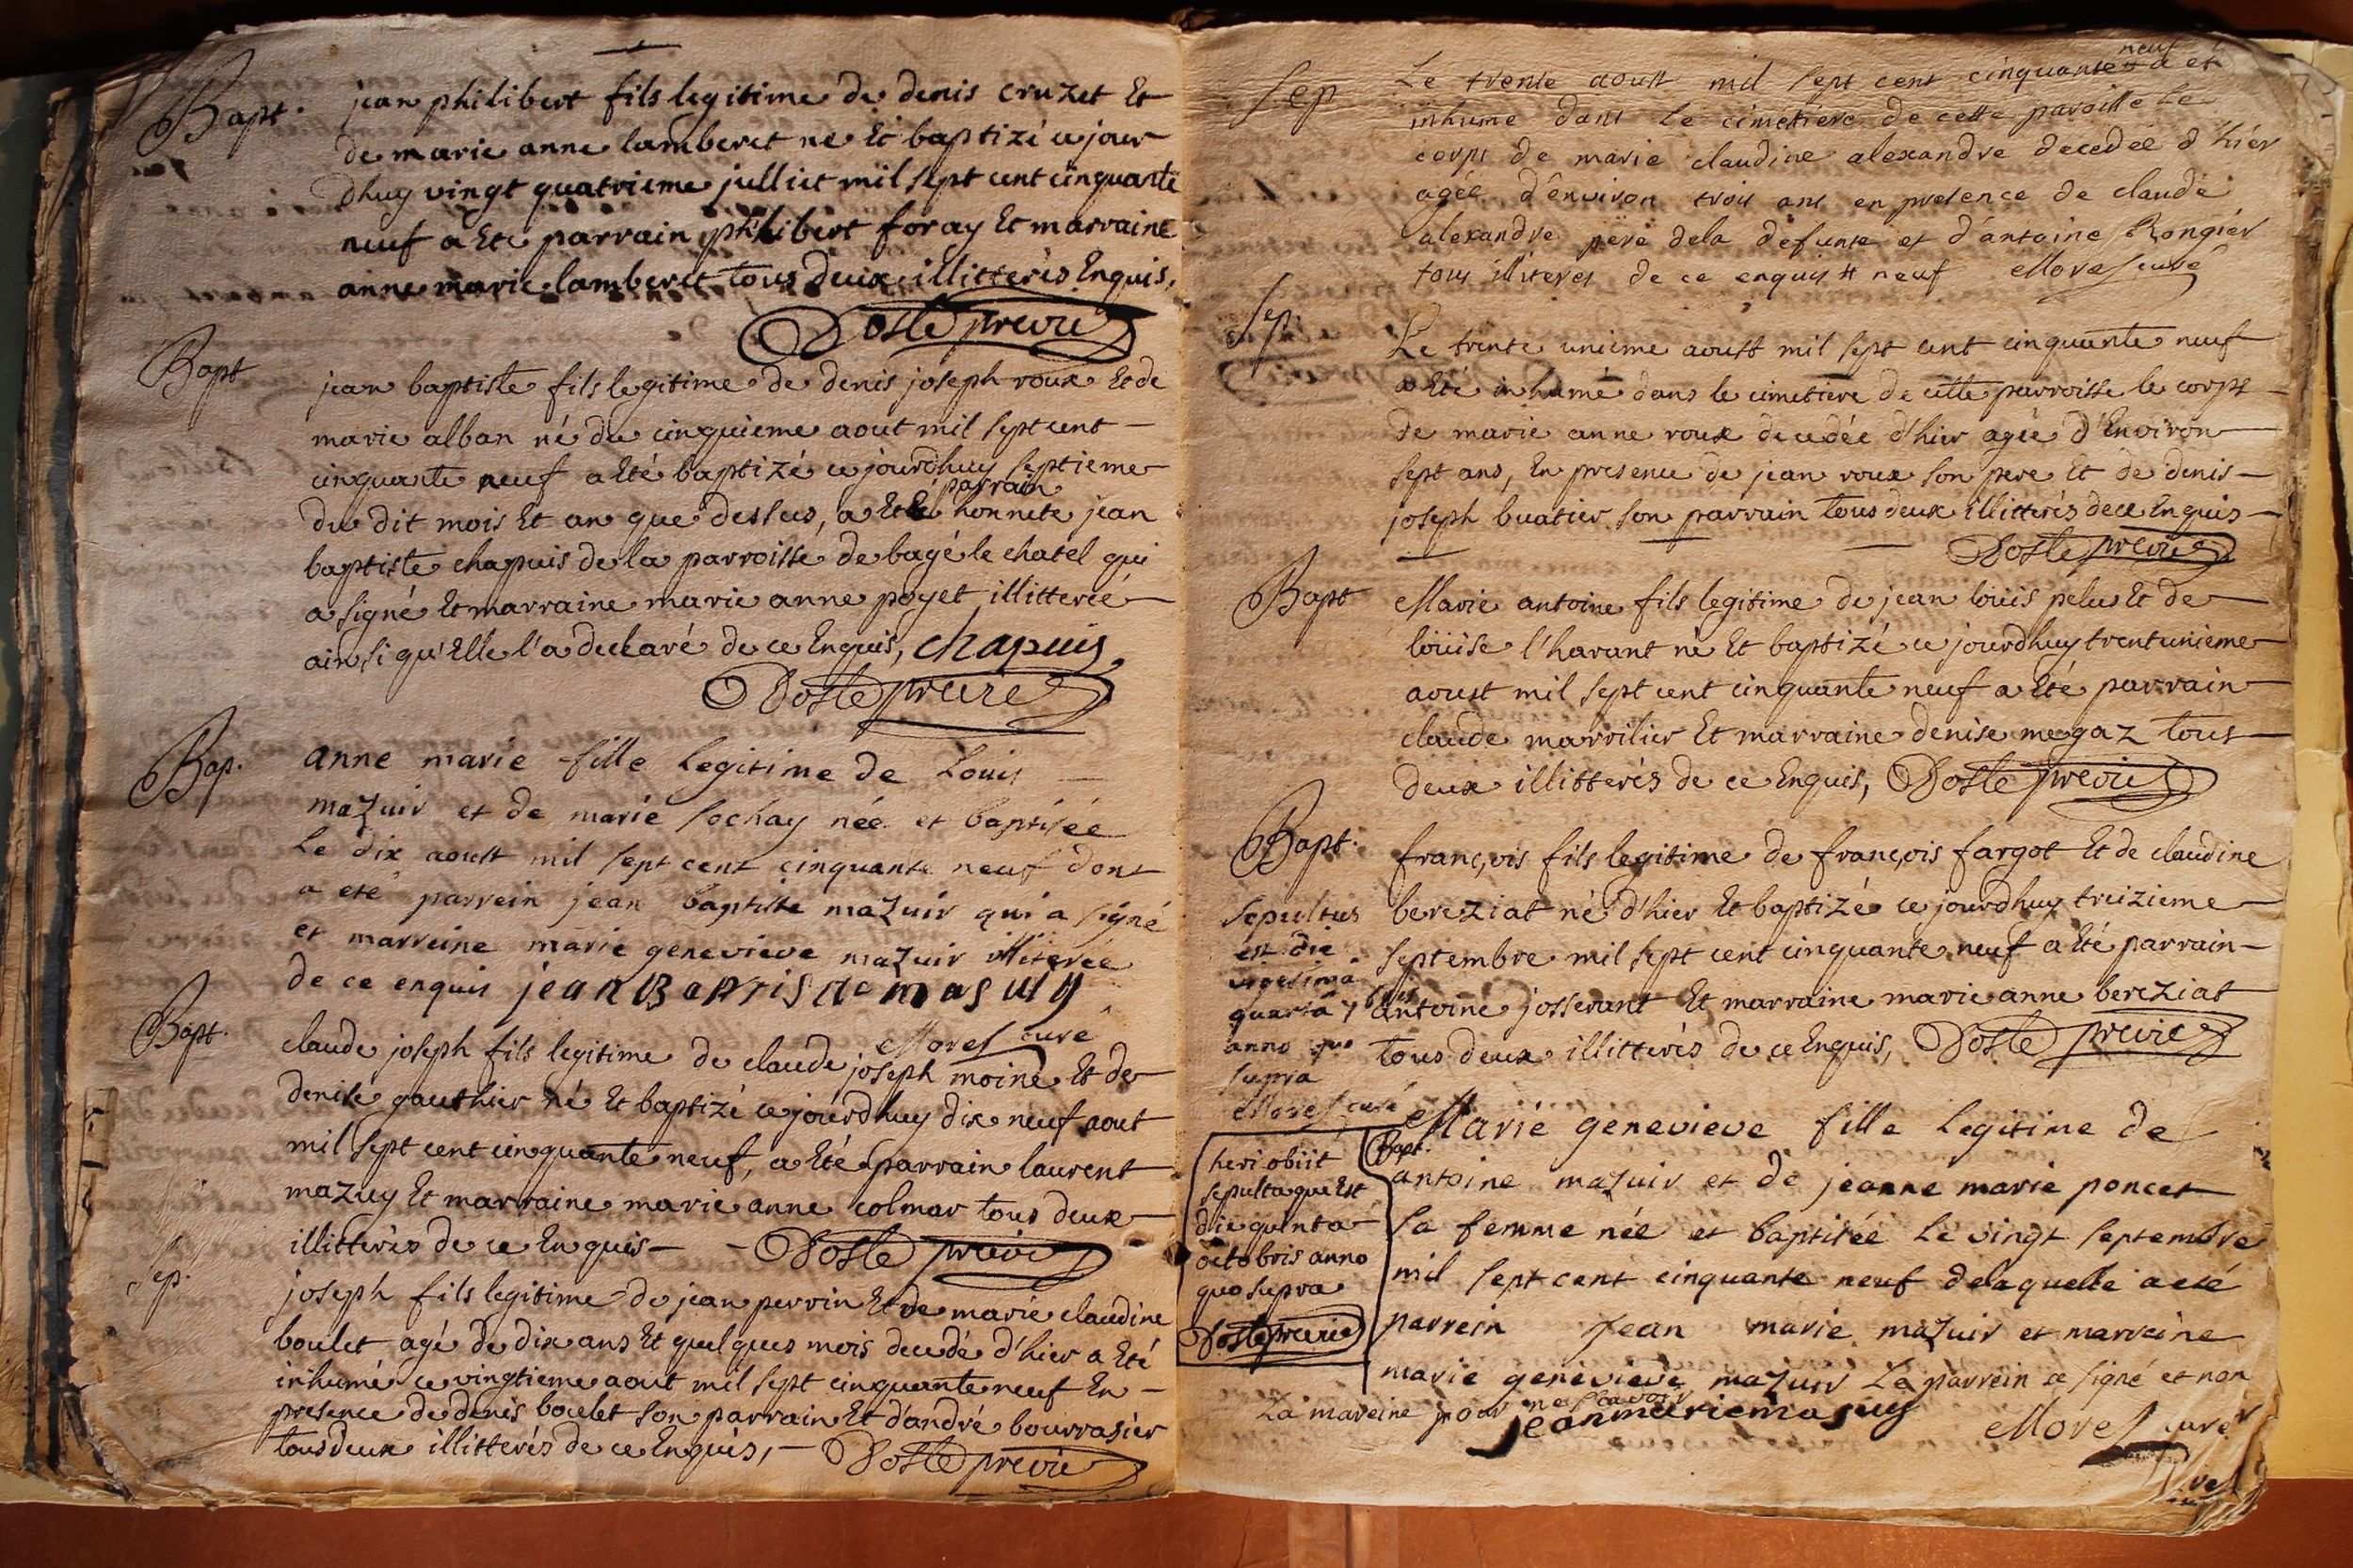 Bapt. jean philibert fils legitime de denis cruzet Et
de marie anne lamberet ne Et baptizé ce jour
dhuy vingt quatrieme julliet mil sept cent cinquante
neuf a Eté parrain philibert foray Et marraine
anne marie lamberet tous deux illitterés Enquis,
Dosle prevre
Bapt jean baptiste fils legitime de denis joseph roux Et de
marie alban né du cinquieme aout mil sept cent
cinquante neuf a Eté baptizé ce jourdhuy septieme
parrain
du dit mois Et an que dessus, a Eté honnete jean
baptiste chapuis de la parroisse de bagé le chatel qui
a signé Et marraine marie anne poyet illitteré
ainsi qu'Elle l'a declaré de ce Enquis, chapuis
Dosle prevre
Bap. anne marie fille legitime de Louis
mazuir et de marie sochay née et baptisée
Le dix aoust mil sept cent cinquante neuf dont
a eté parrein jean baptiste mazuir qui a signé
et marreine marie genevieve mazuir illiterée
de ce enquis jean Baptiste masuy
Mores curé
Bapt. claude joseph fils legitime de claude joseph moine Et de
denise gauthier né Et baptizé ce jourdhuy dix neuf aout
mil sept cent cinquante neuf, a Eté parrain laurent
mazuy Et marraine marie anne colmar tous deux
illitterés de ce Enquis Dosle prevre
Sep. joseph fils legitime de jean perrin Et de marie claudine
boulet agé de dix ans Et quelques mois decedé d'hier a Eté
inhumé ce vingtieme aout mil sept cinquante neuf En
presence de denis boulet son parrain Et d'andré bourrasier
tous deux illitterés de ce Enquis, Dosle prevre
neuf
Sep Le trente aoust mil sept cent cinquante # a eté
inhume dans le cimetiére de cette paroisse le
corps de marie claudine alexandre decedée d'hiér
agée d'environ trois ans en presence de claude
alexandre pere dela defunte et d'antoine Rongiér
tous illiteres de ce enquis # neuf Mores curé
Sep. Le trente unieme aoust mil sept cent cinquante neuf
a Eté inhumé dans le cimetiere de cette parroisse le corps
de marie anne roux decedée d'hier agée d'Environ
sept ans, En presence de jean roux son pere Et de denis
joseph buatier son parrain tous deux illitterés de ce Enquis
Dosle prevre
Bapt Marie antoine fils legitime de jean loüis pelus Et de
loüise l'harant né Et baptizé ce jourdhuy trentunieme
aoust mil sept cent cinquante neuf a Eté parrain
claude marrilier Et marraine denise megaz tous
deux illitterés de ce Enquis, Dosle prevre
Bapt. françois fils legitime de françois fargot Et de claudine
bereziat né d'hier Et baptizé ce jourdhuy treizieme
septembre mil sept cent cinquante neuf a Eté parrain
antoine josserant Et marraine marie anne bereziat
tous deux illitterés de ce Enquis, Dosle prevre
sepultus
est die
vigesima
quarta 7bris
anno quo
supra
Mores curé
Bapt. Marie genevieve fille legitime de
antoine mazuir et de jeanne marie poncet
sa femme née et baptisée le vingt septembre
mil sept cent cinquante neuf delaquelle a eté
parrein jean marie mazuir et marreine
marie genevieve mazuir Le parrein a signé et non
La mareine pour ne sçavoir
jean marie masuy Mores curé
heri obiit
sepultaque Est
die quinta
octobris anno
quo supra
Dosle prevre